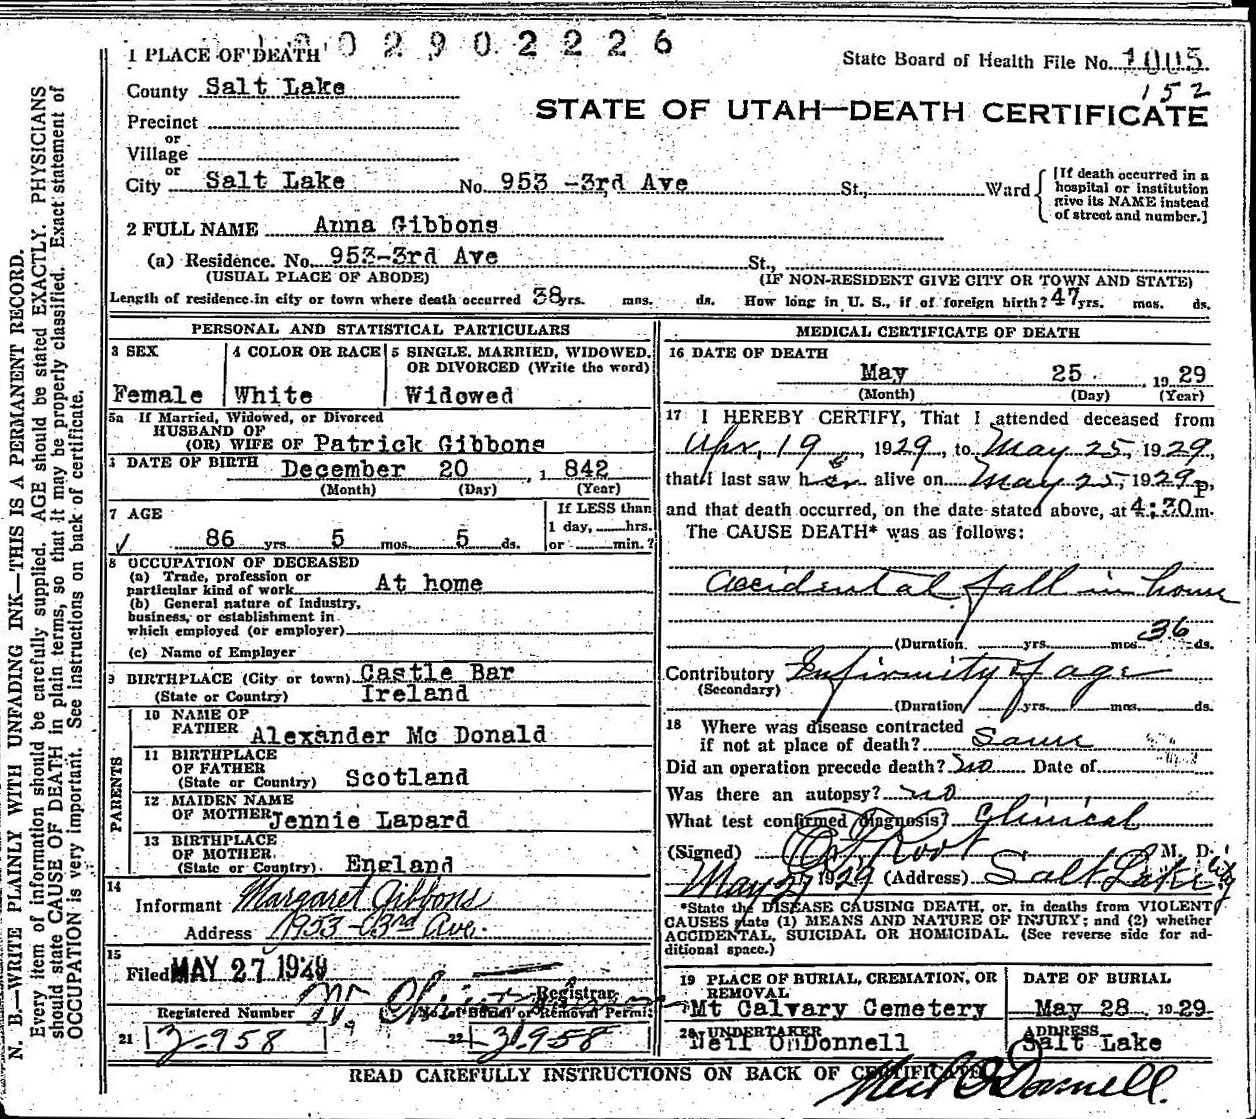 1002902226
1 PLACE OF DEATH
State Board of Health File No. 1005
152
County Salt Lake
STATE OF UTAH—DEATH CERTIFICATE
Precinct
or
Village
or
City Salt Lake No. 953 -3rd Ave St., Ward
[If death occurred in a
hospital or institution
give its NAME instead
of street and number.]
2 FULL NAME Anna Gibbons
(a) Residence. No. 953-3rd Ave St.,
(USUAL PLACE OF ABODE) (IF NON-RESIDENT GIVE CITY OR TOWN AND STATE)
Length of residence in city or town where death occurred 38 yrs. mos. ds. How long in U. S., if of foreign birth? 47 yrs. mos. ds.
PERSONAL AND STATISTICAL PARTICULARS
3 SEX
Female
4 COLOR OR RACE
White
5 SINGLE, MARRIED, WIDOWED,
OR DIVORCED (Write the word)
Widowed
5a If Married, Widowed, or Divorced
HUSBAND OF
(OR) WIFE OF Patrick Gibbons
DATE OF BIRTH December 20, 1842
(Month) (Day) (Year)
7 AGE
86 yrs. 5 mos. 5 ds.
If LESS than
1 day, hrs.
or min.?
8 OCCUPATION OF DECEASED
(a) Trade, profession or
particular kind of work At home
(b) General nature of Industry,
business, or establishment in
which employed (or employer)
(c) Name of Employer
9 BIRTHPLACE (City or town) Castle Bar
(State or Country) Ireland
PARENTS
10 NAME OF
FATHER Alexander Mc Donald
11 BIRTHPLACE
OF FATHER
(State or Country) Scotland
12 MAIDEN NAME
OF MOTHER Jennie Lapard
13 BIRTHPLACE
OF MOTHER
(State or Country) England
14
Informant Margaret Gibbons
Address 953-3rd Ave.
15
Filed MAY 27 1929
Registrar
Registered Number
No. of Burial or Removal Permit
21 3-958
22 3-958
MEDICAL CERTIFICATE OF DEATH
16 DATE OF DEATH
May 25, 1929
(Month) (Day) (Year)
17 I HEREBY CERTIFY, That I attended deceased from
Apr, 19, 1929, to May 25, 1929,
that I last saw her alive on May 25, 1929,
and that death occurred, on the date stated above, at 4:30 p m.
The CAUSE DEATH* was as follows:
accidental fall in house
(Duration yrs. mos. 36 ds.
Contributory Infirmity of age
(Secondary)
(Duration yrs. mos. ds.
18 Where was disease contracted
if not at place of death? Same
Did an operation precede death? no Date of
Was there an autopsy? no
What test confirmed diagnosis? Clinical
(Signed) Root M. D.
May 27 1929 (Address) Salt Lake City
*State the DISEASE CAUSING DEATH, or, in deaths from VIOLENT
CAUSES state (1) MEANS AND NATURE OF INJURY; and (2) whether
ACCIDENTAL, SUICIDAL OR HOMICIDAL. (See reverse side for ad-
ditional space.)
19 PLACE OF BURIAL, CREMATION, OR
REMOVAL
Mt Calvary Cemetery
DATE OF BURIAL
May 28, 1929.
20 UNDERTAKER
Neil O'Donnell
ADDRESS
Salt Lake
READ CAREFULLY INSTRUCTIONS ON BACK OF CERTIFICATE
Neil O'Donnell.
N. B.—WRITE PLAINLY WITH UNFADING INK—THIS IS A PERMANENT RECORD.
Every item of information should be carefully supplied. AGE should be stated EXACTLY. PHYSICIANS
should state CAUSE OF DEATH in plain terms, so that it may be properly classified. Exact statement of
OCCUPATION is very important. See instructions on back of certificate.